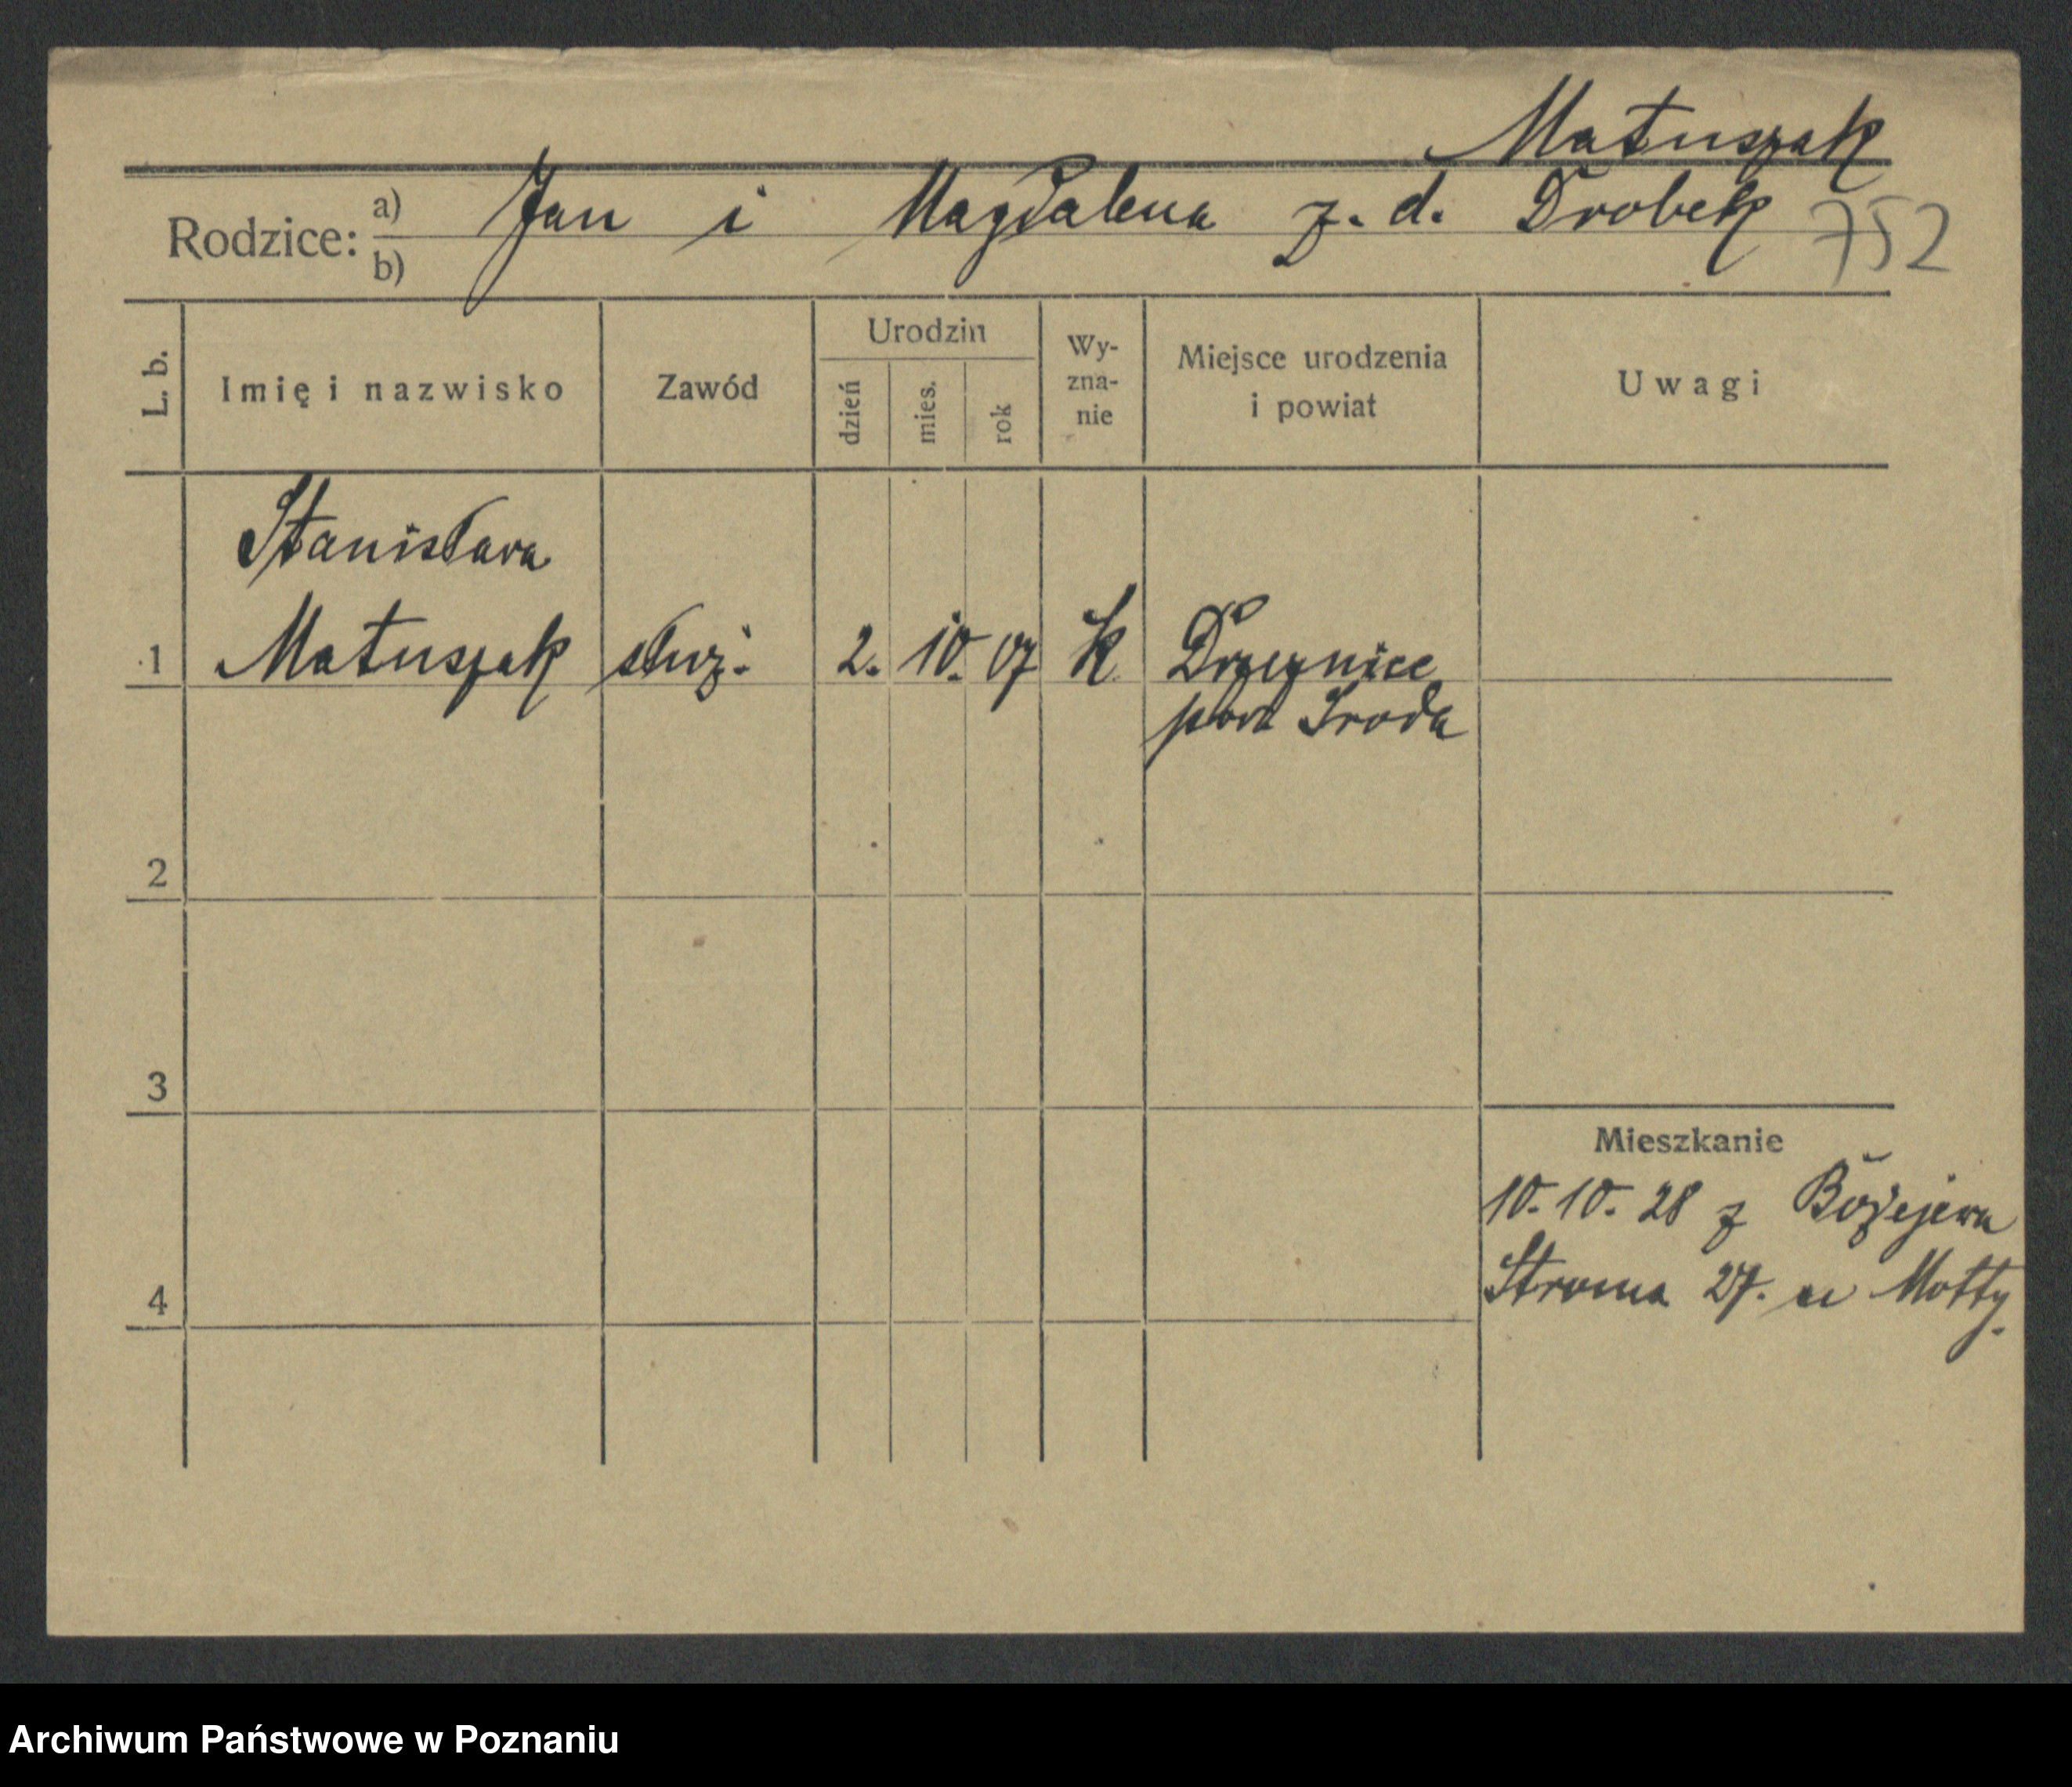 Matuszak
Rodzice: a) b) Jan i Magdalena z. d. Drobek 752
L. b. Imię i nazwisko Zawód Urodzin dzień mies. rok Wy-zna-nie Miejsce urodzenia i powiat Uwagi
Stanisława
1 Matuszak służ. 2. 10. 07 k
pow Sroda
2
3
Mieszkanie
10. 10. 28 z Bożejewa
4 Stroma 27. u Motty
Archiwum Państwowe w Poznaniu